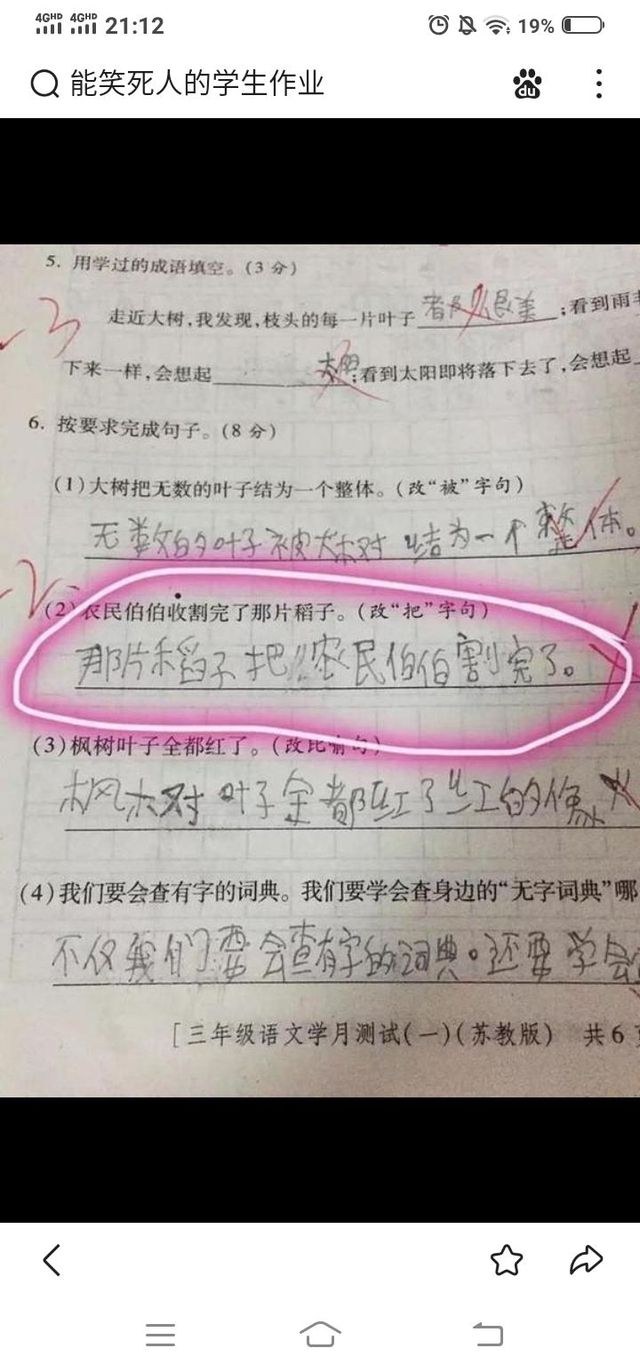 4GHD 4GHD 21:12 19%
能笑死人的学生作业
du
5. 用学过的成语填空。(3 分)
3
走近大树,我发现,枝头的每一片叶子 都很美 ;看到雨
下来一样,会想起 太阳 ;看到太阳即将落下去了,会想起
6. 按要求完成句子。(8 分)
(1)大树把无数的叶子结为一个整体。(改“被”字句)
无数的叶子被大树结为一个整体。
-2
(2)农民伯伯收割完了那片稻子。(改“把”字句)
那片稻子把农民伯伯割完了。
(3)枫树叶子全都红了。(改比喻句)
枫树叶子全都红了红的像
(4)我们要会查有字的词典。我们要学会查身边的“无字词典”哪
不仅我们要会查有字的词典。还要学会
[三年级语文学月测试(一)(苏教版) 共6